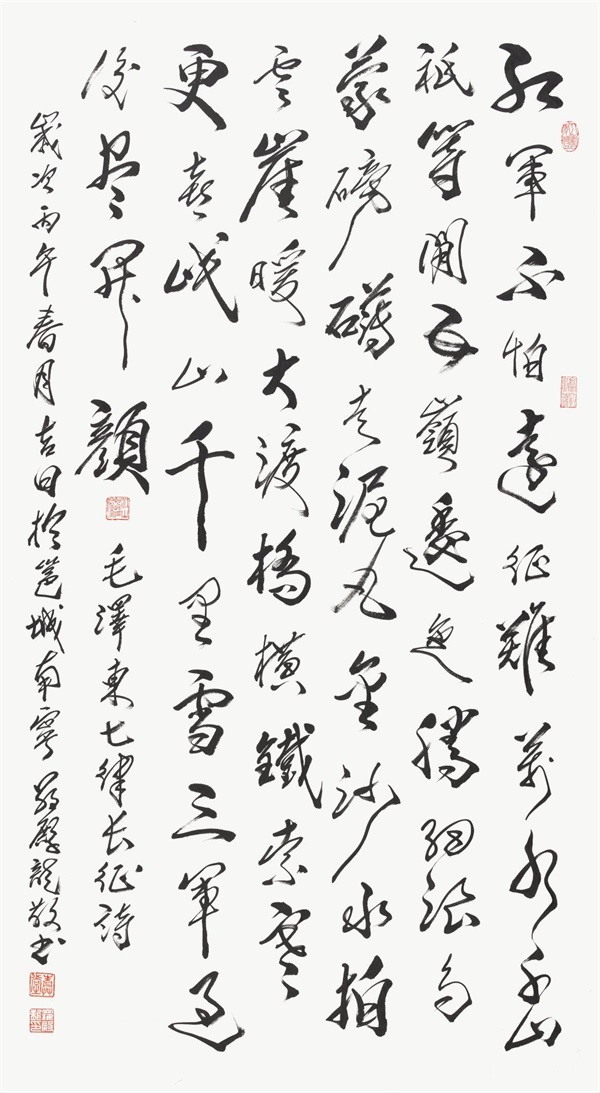 紅軍不怕遠征難萬水千山
祇等閒五嶺逶迤騰細浪烏
蒙磅礴走泥丸金沙水拍
雲崖暖大渡橋橫鐵索寒
更喜岷山千里雪三軍過
後盡開顏 毛澤東七律長征詩
歲次丙午春月吉日於邕城南寧龍敬書